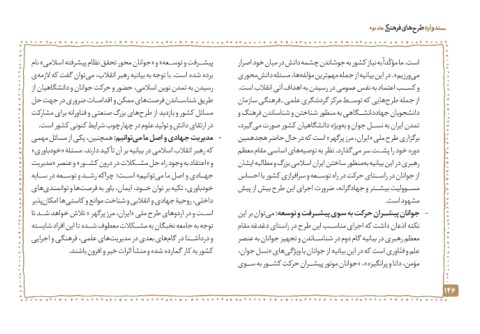 سندواره طرح‌های فرهنگی جلد دوم
است. ما مؤکداً به نیاز کشور به جوشاندن چشمه دانش در میان خود اصرار
می‌ورزیم». در این بیانیه از جمله مهم‌ترین مؤلفه‌ها، مسئله دانش‌محوری
و کسب اعتماد به نفس عمومی در رسیدن به اهداف آتی انقلاب است.
از جمله طرح‌هایی که توسط مرکز گردشگری علمی ـ فرهنگی سازمان
دانشجویان جهاددانشگاهی به منظور شناختن و شناساندن فرهنگ و
تمدن ایران به نسل جوان و به‌ویژه دانشگاهیان کشور صورت می‌گیرد،
برگزاری طرح ملی «ایران، مرز پرگهر» است که در حال حاضر هجدهمین
دوره خود را پشت سر می‌گذارد. نظر به توصیه‌های اساسی مقام معظم
رهبری در این بیانیه به‌منظور ساختن ایران اسلامی بزرگ و مطالبه ایشان
از جوانان در راستای حرکت در راه توسعه و سرافرازی کشور با احساس
مسوولیت بیشتر و جهادگرانه، ضرورت اجرای این طرح بیش از پیش
مشهود است.
- جوانان پیشران حرکت به سوی پیشرفت و توسعه: می‌توان بر این
نکته اذعان داشت که اجرای مناسب این طرح در راستای دغدغه مقام
معظم رهبری در بیانیه گام دوم در شناساندن و تجهیز جوانان به عنصر
علم و فناوری است که در این بیانیه از جوانان با ویژگی‌های «نسل جوان،
مؤمن، دانا و پرانگیزه»، «جوانان موتور پیشران حرکت کشور به سوی
پیشرفت و توسعه» و «جوانان محور تحقق نظام پیشرفته اسلامی» نام
برده شده است. با توجه به بیانیه رهبر انقلاب، می‌توان گفت که لازمه‌ی
رسیدن به تمدن نوین اسلامی، حضور و حرکت جوانان و دانشگاهیان از
طریق شناساندن فرصت‌های ممکن و اقدامات ضروری در جهت حل
مسائل کشور و بازدید از طرح‌های بزرگ صنعتی و فناورانه برای مشارکت
در ارتقای دانش و تولید علوم در چهارچوب شرایط کنونی کشور است.
- مدیریت جهادی و اصل ما می‌توانیم: همچنین، یکی از مسائل مهمی
که رهبر انقلاب اسلامی در بیانیه بر آن تأکید دارند، مسئلهٔ «خودباوری
و «اعتقاد به وجود راه حل مشکلات در درون کشور» و عنصر «مدیریت
جهادی و اصل ما می‌توانیم» است؛ چراکه رشد و توسعه در سایه
خودباوری، تکیه بر توان خود، ایمان، باور به فرصت‌ها و توانمندی‌های
داخلی، روحیهٔ جهادی و انقلابی و شناخت موانع و کاستی‌ها امکان‌پذیر
است و در اردوهای طرح ملی «ایران، مرز پرگهر» تلاش خواهد شد تا
توجه به جامعه نخبگان به مشکلات معطوف شده تا این افراد شایسته
و دردآشنا در گام‌های بعدی در مدیریت‌های علمی، فرهنگی و اجرایی
کشور به کار گمارده شده و منشأ اثرات خیر و افزون باشند.
۱۴۶